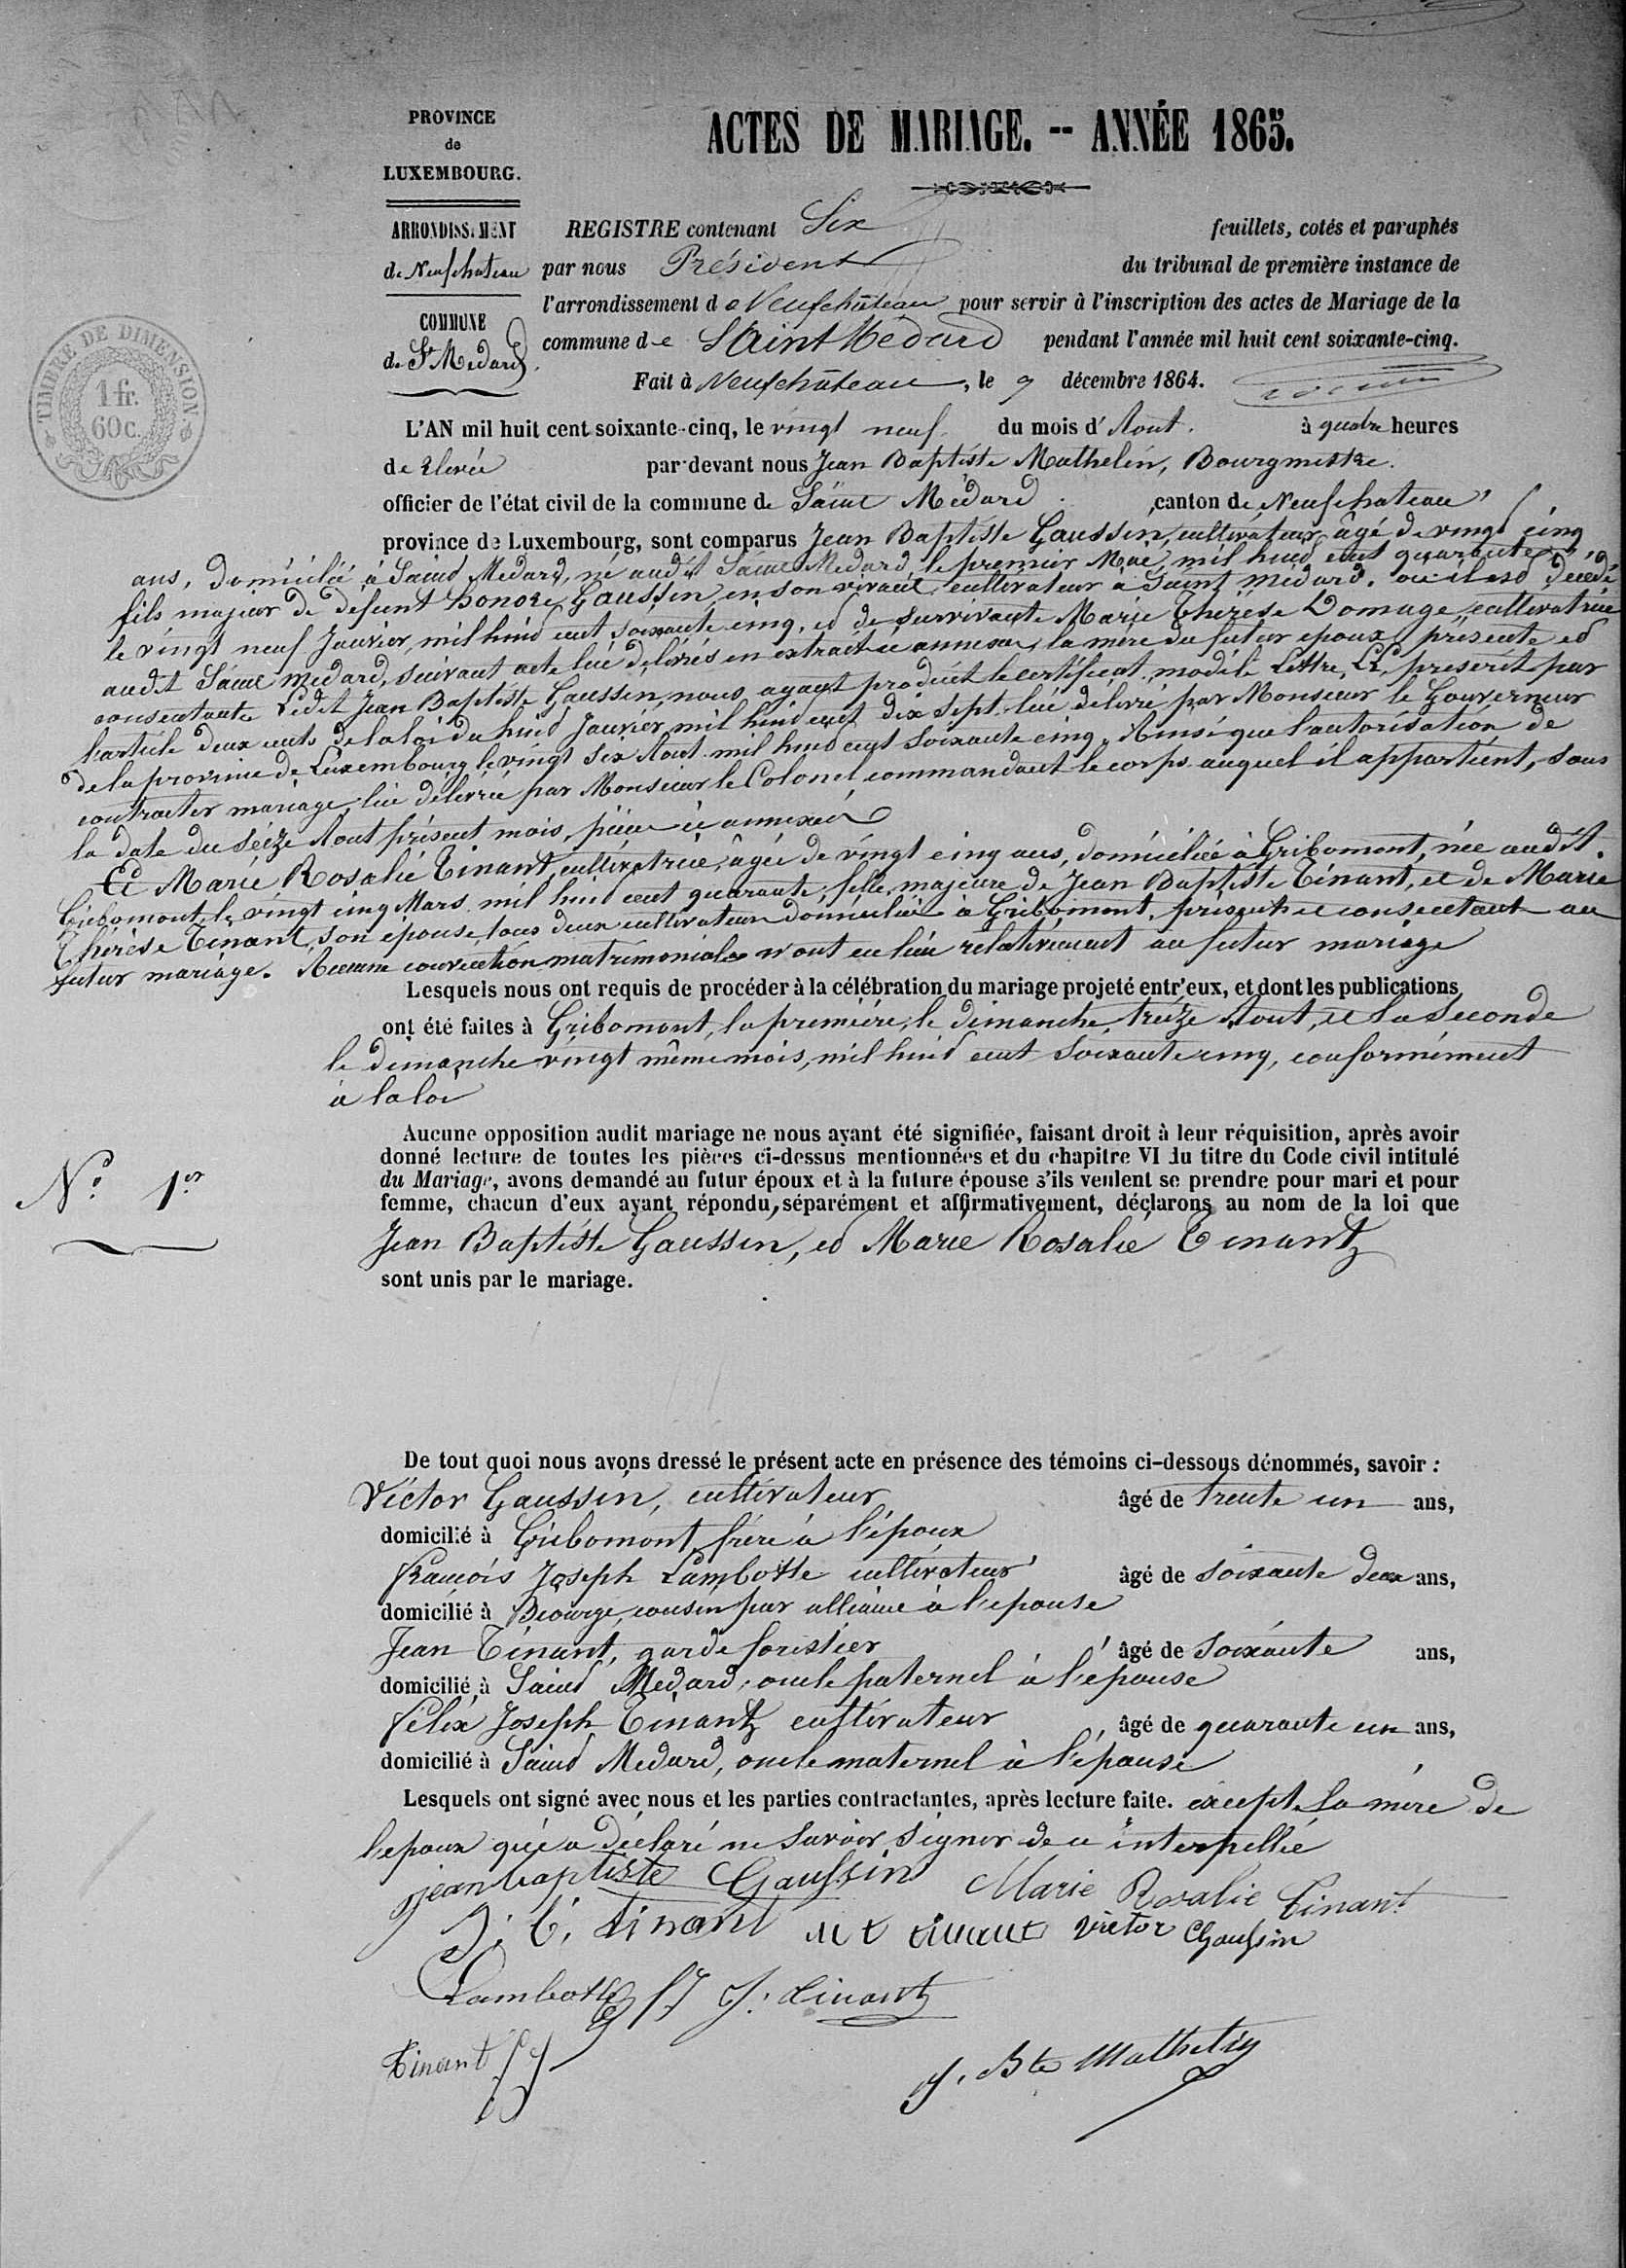 PROVINCE
de
LUXEMBOURG.
ARRONDISSEMENT
de Neufchateau
COMMUNE
de St Medard.
TIMBRE DE DIMENSION
1 fr.
60 c.
ACTES DE MARIAGE. -- ANNÉE 1865.
REGISTRE contenant Six feuillets, cotés et paraphés
par nous Président du tribunal de première instance de
l'arrondissement de Neufchâteau pour servir à l'inscription des actes de Mariage de la
commune de Saint Médard pendant l'année mil huit cent soixante-cinq.
Fait à Neufchâteau, le 9 décembre 1864.
L'AN mil huit cent soixante-cinq, le vingt neuf du mois d'Aout. à quatre heures
de Relevée par-devant nous Jean Baptiste Mathelin, Bourgmestre.
officier de l'état civil de la commune de Saint Médard canton de Neufchateau
province de Luxembourg, sont comparus Jean Baptiste Gaussin, cultivateur, âgé de vingt cinq
ans, domicilié à Saint Medard, né audit Saint Medard, le premier Mai, mil huit cent quarante,
fils majeur de défunt Honoré Gaussin, en son vivant, cultivateur a Saint Medard. ou il est décédé
le vingt neuf Janvier, mil huit cent soixante cinq, et de survivante Marie Thérèse Domage, cultivatrice
audit Saint Medard, suivant acte lui délivrés en extrait ci annexés, la mère du futur epoux, présente et
consentante Ledit Jean Baptiste Gaussin, nous ayant produit le certificat modèle Lettre LL prescrit par
l'article deux cents de la loi du huit Janvier mil huit cent dix sept, lui délivré par Monsieur le Gouverneur
de la province de Luxembourg le vingt six Aout mil huit cent soixante cinq. Ainsi que l'autorisation de
contracter mariage, lui délivrée par Monsieur le Colonel commandant le corps auquel il appartient, sous
la date du Seize Aout présent mois, pièces ci annexées
Et Marie Rosalie Tinant, cultivatrice, âgée de vingt cinq ans, domiciliée à Gribomont, née audit.
Gribomont le vingt cinq Mars mil huit cent quarante, fille majeure de Jean Baptiste Tinant, et de Marie
Thérèse Tinant, son épouse, tous deux cultivateurs domiciliés à Gribomont, présents et consentant au
futur mariage. Aucune convention matrimoniales n'ont eu lieu relativement au futur mariage
Lesquels nous ont requis de procéder à la célébration du mariage projeté entr'eux, et dont les publications
ont été faites à Gribomont, la première, le dimanche, treize Aout, et la Seconde
le dimanche vingt même mois, mil huit cent soixante cinq, conformément
à la loi
Aucune opposition audit mariage ne nous ayant été signifiée, faisant droit à leur réquisition, après avoir
donné lecture de toutes les pièces ci-dessus mentionnées et du chapitre VI du titre du Code civil intitulé
du Mariage, avons demandé au futur époux et à la future épouse s'ils veulent se prendre pour mari et pour
femme, chacun d'eux ayant répondu, séparément et affirmativement, déclarons au nom de la loi que
No. 1er
Jean Baptiste Gaussin, et Marie Rosalie Tinant
sont unis par le mariage.
De tout quoi nous avons dressé le présent acte en présence des témoins ci-dessous dénommés, savoir :
Victor Gaussin, cultivateur âgé de trente un ans,
domicilié à Gribomont, frère à l'époux
François Joseph Lambotte cultivateur âgé de soixante deux ans,
domicilié à Biourge, cousin par alliance à l'epouse
Jean Tinant, garde forestier âgé de soixante ans,
domicilié à Saint Medard, oncle paternel à l'epouse
Félix Joseph Tinant cultivateur âgé de quarante un ans,
domicilié à Saint Medard, oncle maternel à l'épouse
Lesquels ont signé avec nous et les parties contractantes, après lecture faite. excepté la mère de
l'epoux qui a déclaré ne savoir signer de ce interpellée
jean baptiste Gaussin Marie Rosalie Tinant
J. B. tinant M t tinant victor Gaussin
Lambotte fJ J. tinant
Tinant fJ
J. Bte Mathelin